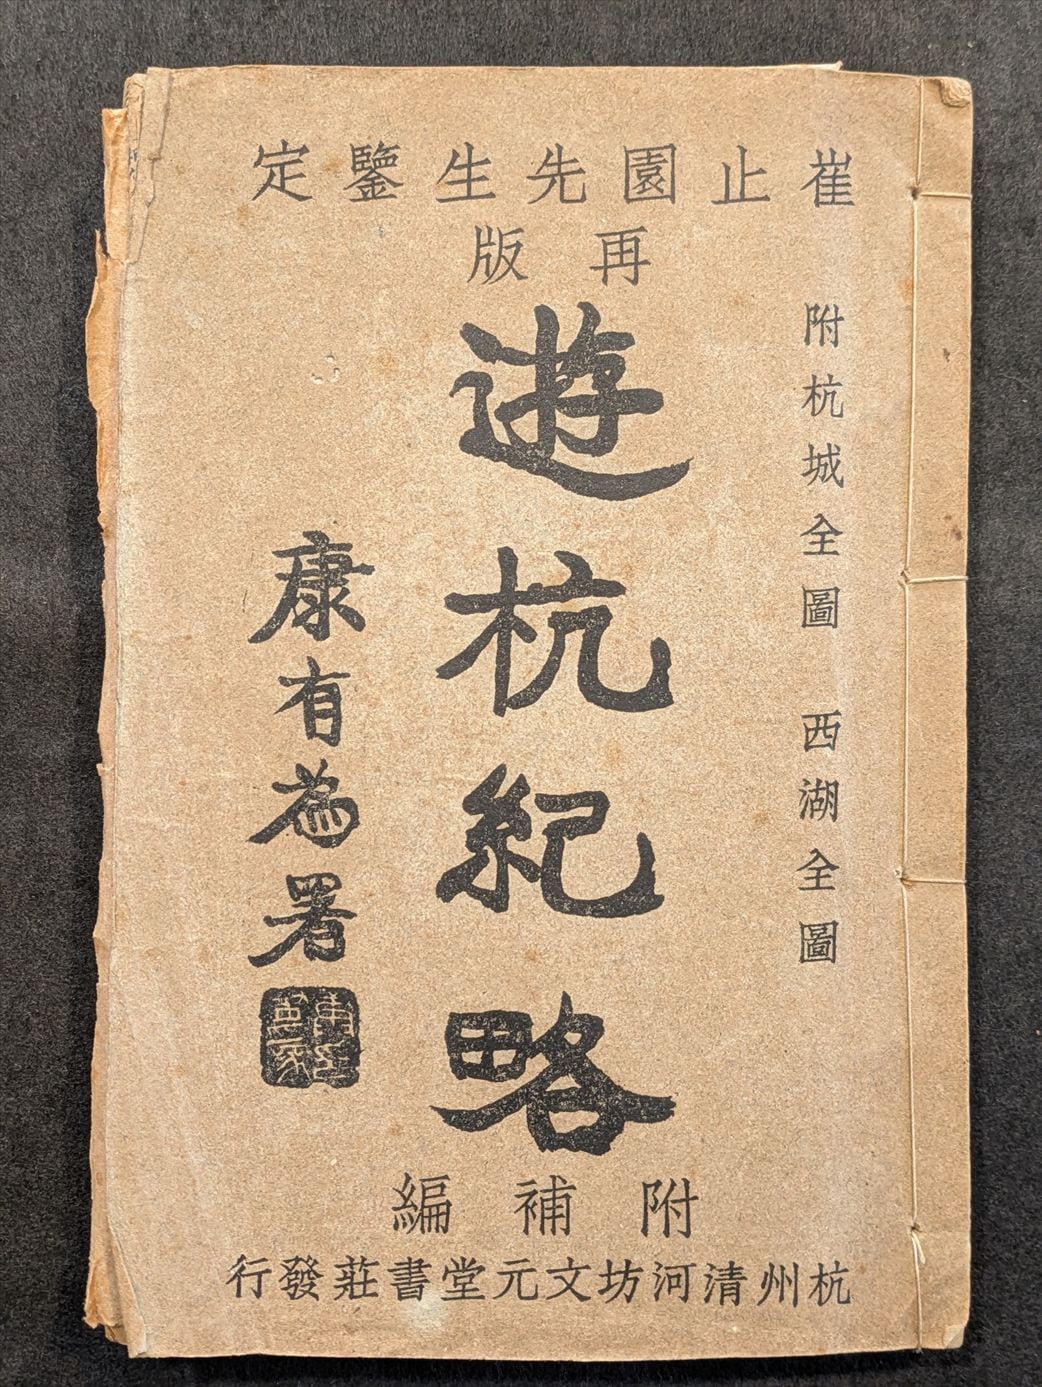 崔止園先生鑒定
再版
附杭城全圖 西湖全圖
遊杭紀略
康有為署
附補編
杭州清河坊文元堂書莊發行